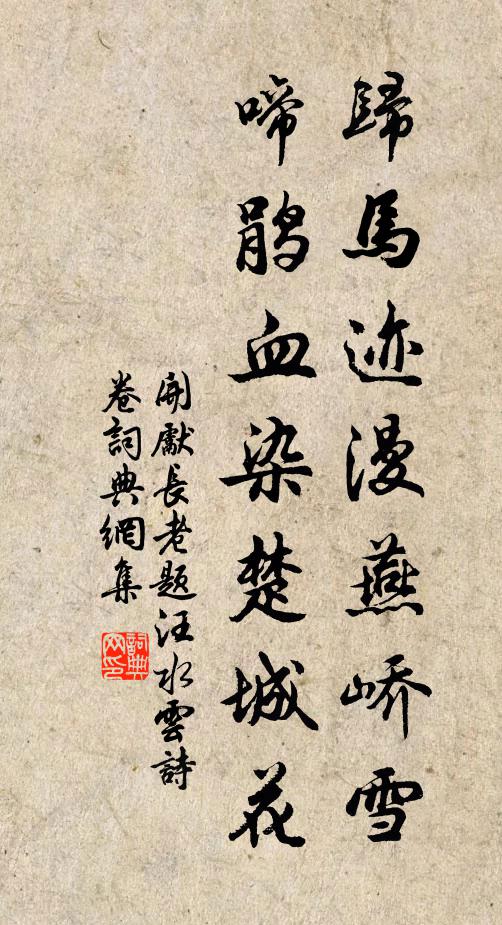 歸馬迹漫燕嶠雪
啼鵑血染楚城花
開獻長老題汪水雲詩
卷詞典網集
詞典网印